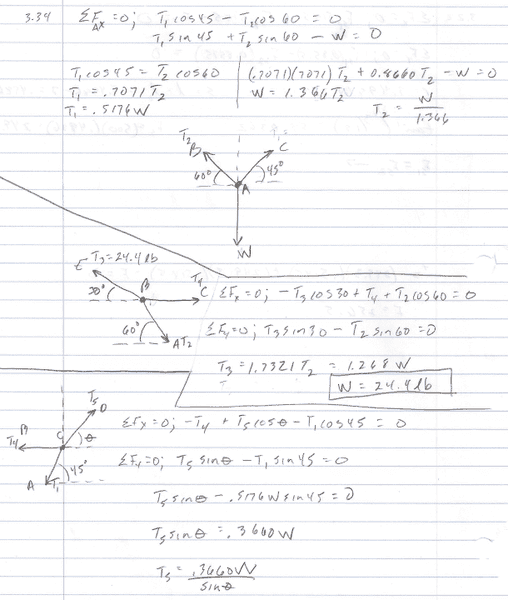 3.34 ΣF_Ax = 0; T₁cos45 - T₂cos60 = 0
T₁sin45 + T₂sin60 - W = 0
T₁cos45 = T₂cos60
T₁ = .7071T₂
T₁ = .5176W
(.7071)(.7071)T₂ + 0.8660T₂ - W = 0
W = 1.366T₂
T₂ = W/1.366
T₂
B
C
60°
45°
A
W
T₃ = 24.4 lb
30°
B
T₄
C
60°
A T₂
ΣFx = 0; -T₃cos30 + T₄ + T₂cos60 = 0
ΣFy = 0; T₃sin30 - T₂sin60 = 0
T₃ = 1.7321T₂ = 1.268W
W = 24.4 lb
T₅
D
B
T₄
C
θ
45°
A
T₁
ΣFx = 0; -T₄ + T₅cosθ - T₁cos45 = 0
ΣFy = 0; T₅sinθ - T₁sin45 = 0
T₅sinθ - .5176Wsin45 = 0
T₅sinθ = .3660W
T₅ = .3660W/sinθ